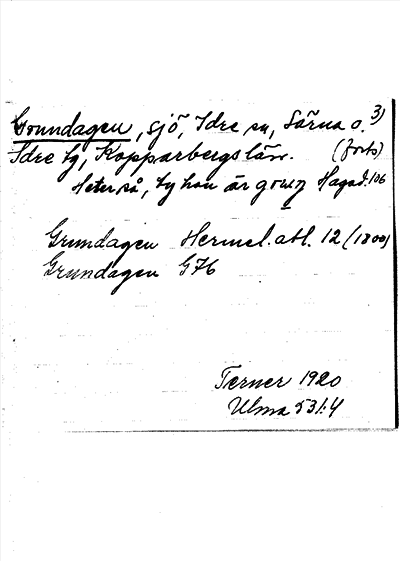 Grundagen, sjö, Idre sn, Särna o. 3)
Idre tg, Kopparbergs län. (forts)
Heter så, ty han är Hagad. 106
Grundagen Hermel. atl. 12 (1800)
Grundagen G76
Terner 1920
Ulma 53:4